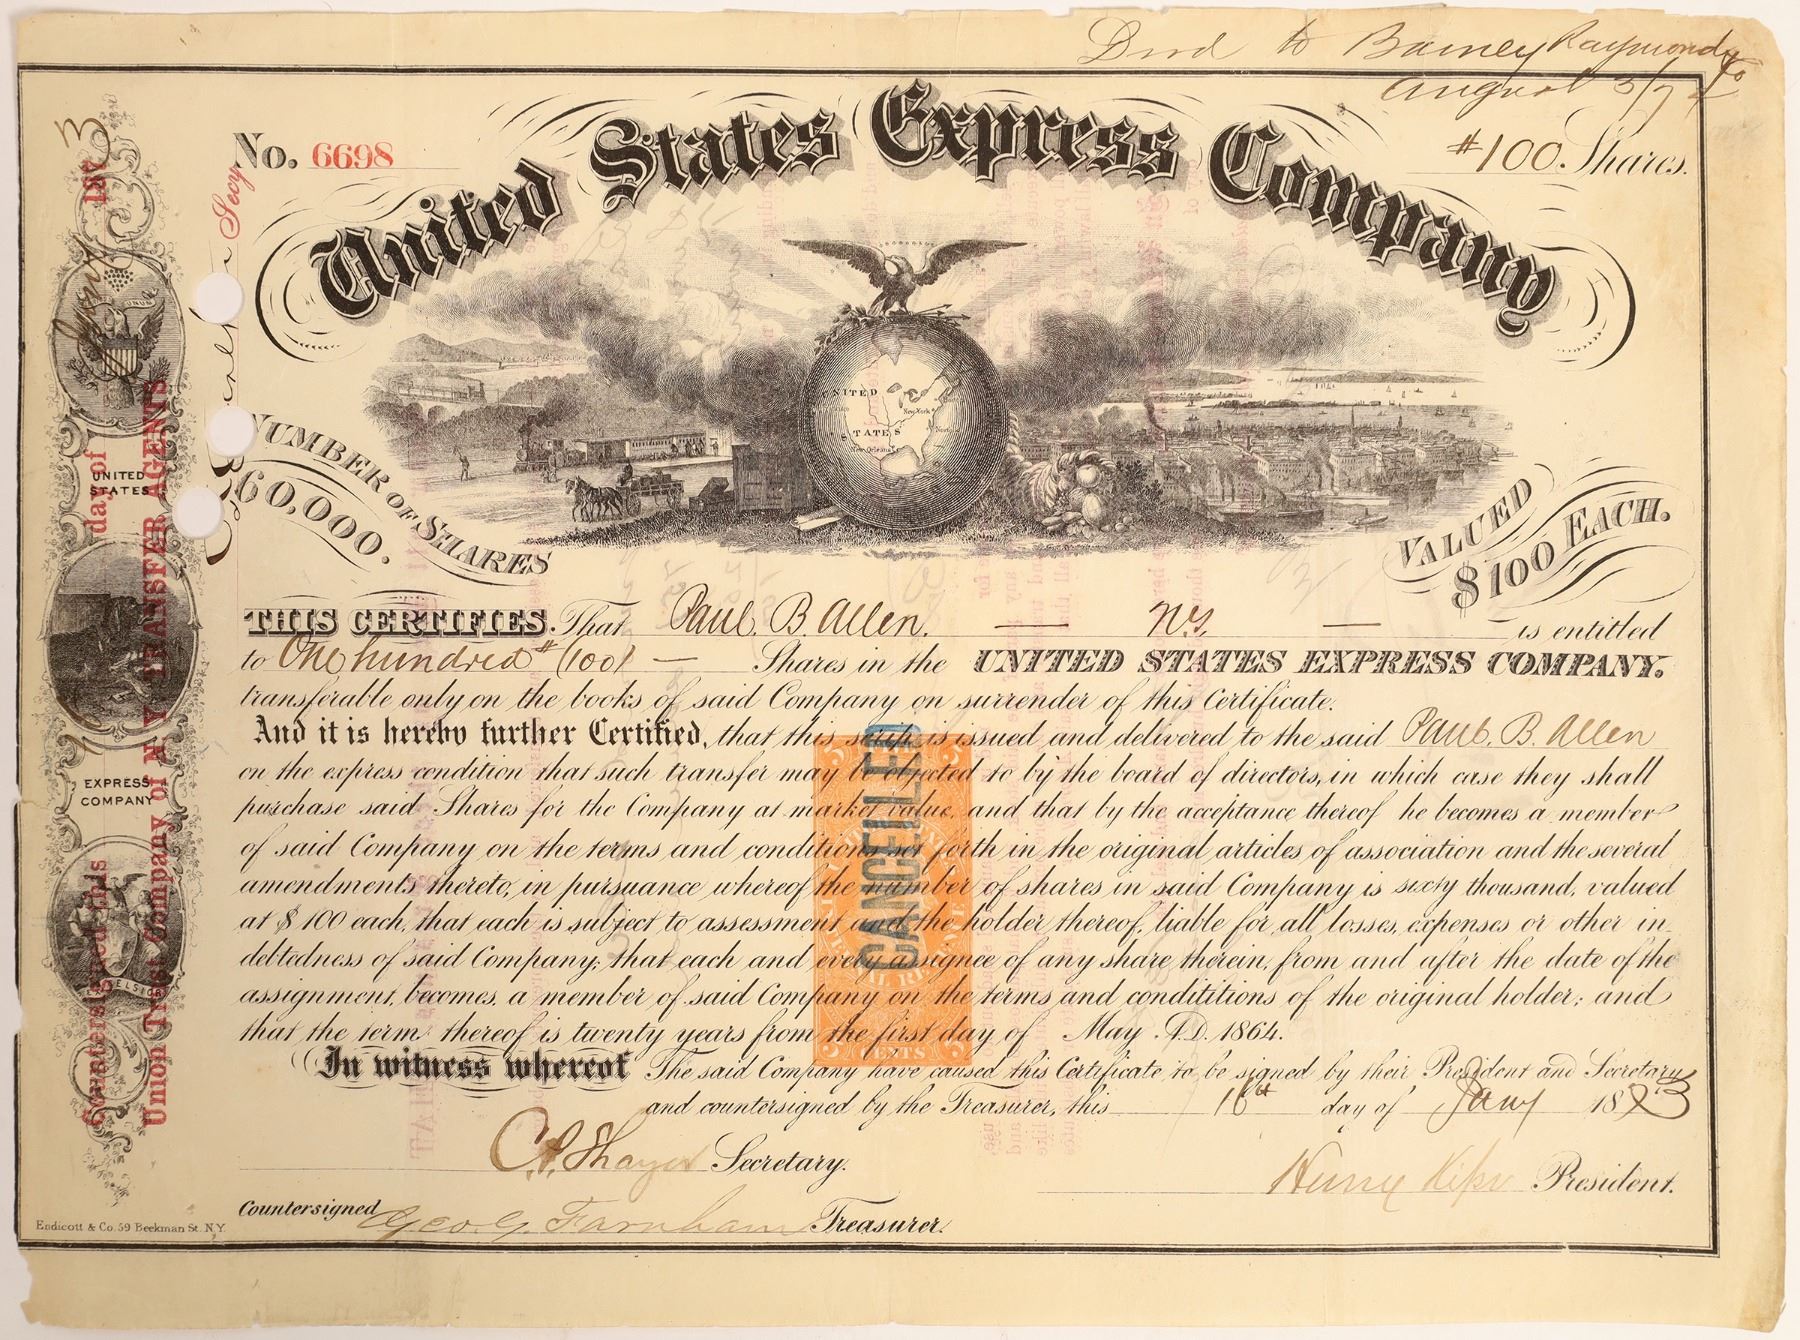 to Barney Raymond & Co
August 3/72
No. 6698
#100 Shares.
United States Express Company
UNITED
STATES
New York
New Orleans
NUMBER OF SHARES
60,000.
VALUED
$100 EACH.
THIS CERTIFIES That Paul. B. Allen. — N.Y. — is entitled
to One hundred # (100) — Shares in the UNITED STATES EXPRESS COMPANY.
transferable only on the books of said Company on surrender of this Certificate.
And it is hereby further Certified, that this scrip is issued and delivered to the said Paul. B. Allen
on the express condition that such transfer may be objected to by the board of directors, in which case they shall
purchase said Shares for the Company at market value, and that by the acceptance thereof he becomes a member
of said Company on the terms and conditions set forth in the original articles of association and the several
amendments thereto, in pursuance whereof the number of shares in said Company is sixty thousand, valued
at $100 each, that each is subject to assessment and the holder thereof, liable for all losses, expenses or other in-
debtedness of said Company; that each and every assignee of any share therein, from and after the date of the
assignment, becomes, a member of said Company on the terms and condititions of the original holder; and
that the term thereof is twenty years from the first day of May A.D. 1864.
In witness whereof The said Company have caused this Certificate to be signed by their President and Secretary
and countersigned by the Treasurer, this 16th day of Jany 1873
Secretary.
Henry Kip President.
Countersigned Geo. G. Farnham Treasurer.
Endicott & Co. 59 Beekman St. N.Y.
CANCELLED
5 CENTS
UNITED
STATES
EXPRESS
COMPANY
EXCELSIOR
Countersigned this day of Jany 187 3
Union Trust Company of N Y TRANSFER AGENTS
Secy